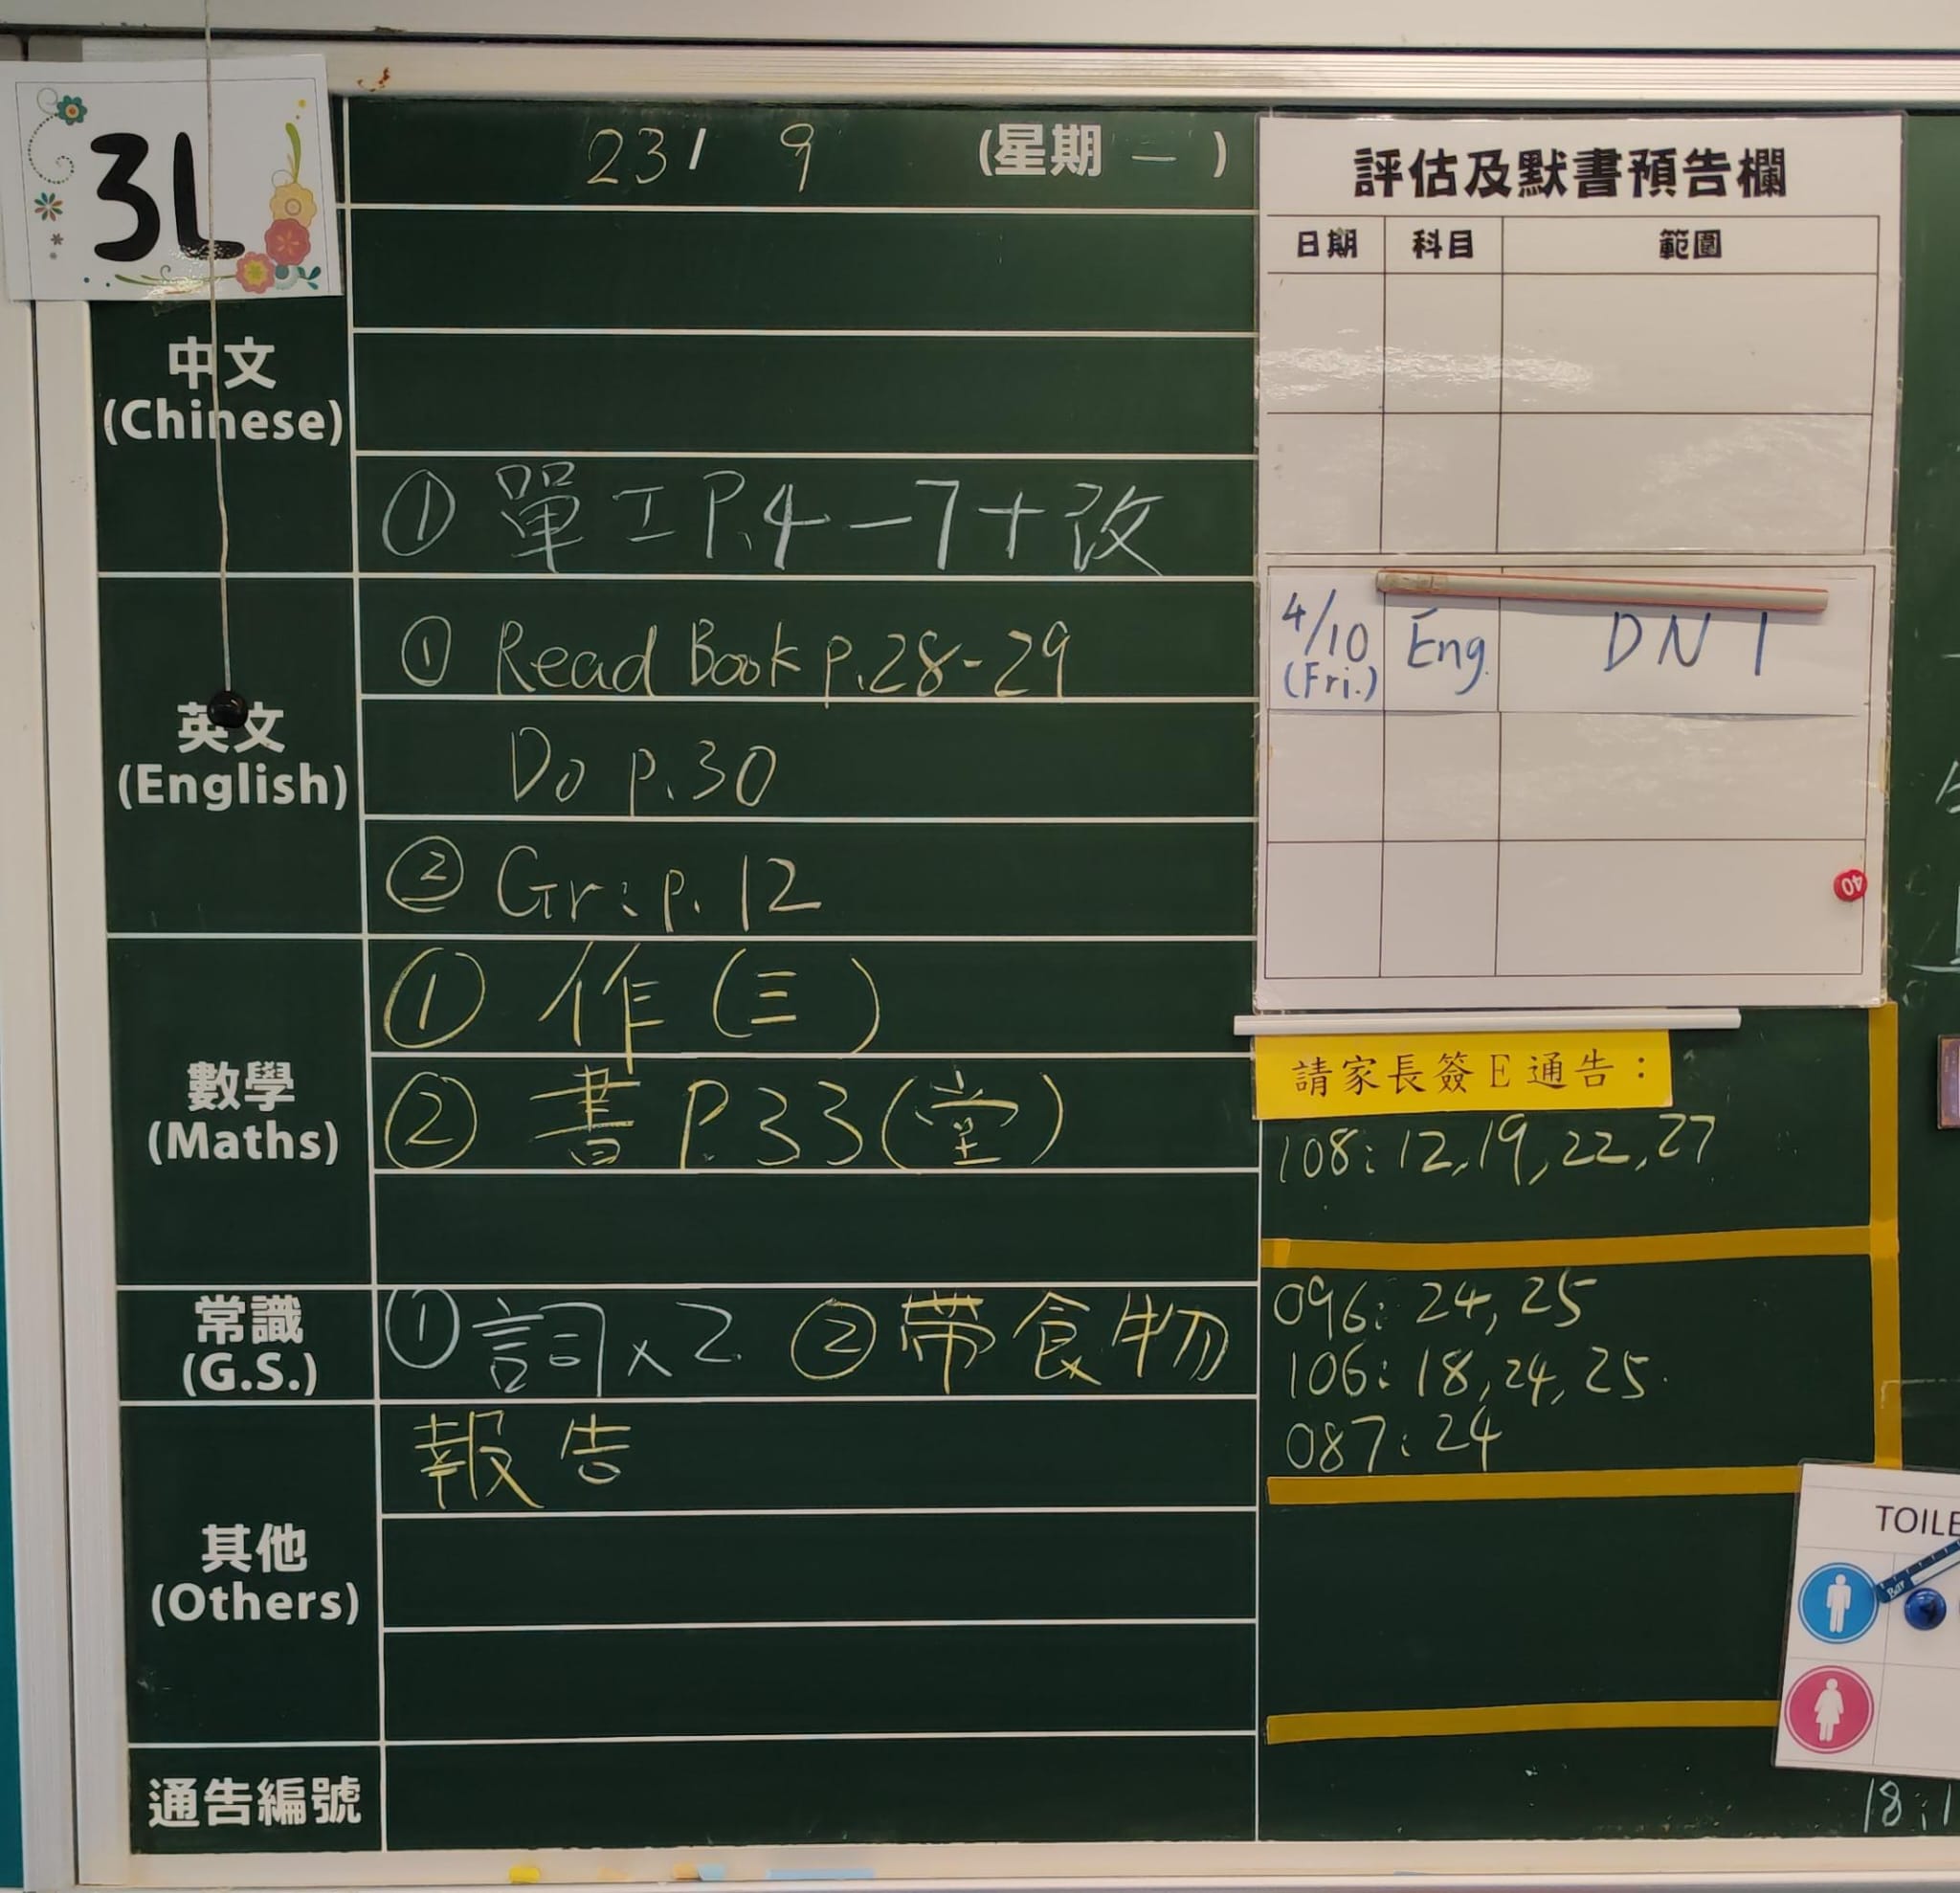 3L
23/ 9 (星期 一 )
中文
(Chinese)
① 單工 P.4 - 7 + 改
英文
(English)
① Read Book p.28-29
Do p.30
② Gr: p. 12
數學
(Maths)
① 作 (三)
② 書 P.33 (堂)
常識
(G.S.)
① 詞 x 2 ② 帶食物
報告
其他
(Others)
通告編號
評估及默書預告欄
日期 科目 範圍
4/10 (Fri.) Eng. DN 1
40
請家長簽E通告：
108: 12, 19, 22, 27
096: 24, 25
106: 18, 24, 25
087: 24